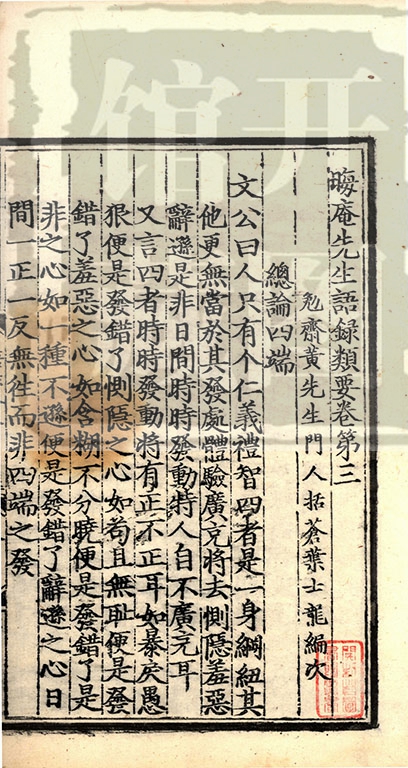 晦庵先生語録類要卷第三
勉齋黃先生門人括蒼葉士龍編次
總論四端
文公曰人只有个仁義禮智四者是一身綱紐其
他更無當於其發處體驗廣充將去惻隠羞惡
辭遜是非日間時時發動特人自不廣充耳
又言四者時時發動特有正不正耳如暴戾愚
狠便是發錯了惻隠之心如苟且無恥便是發
錯了羞惡之心如含糊不分曉便是發錯了是
非之心如一種不遜便是發錯了辭遜之心日
間一正一反無往而非四端之發
开
馆